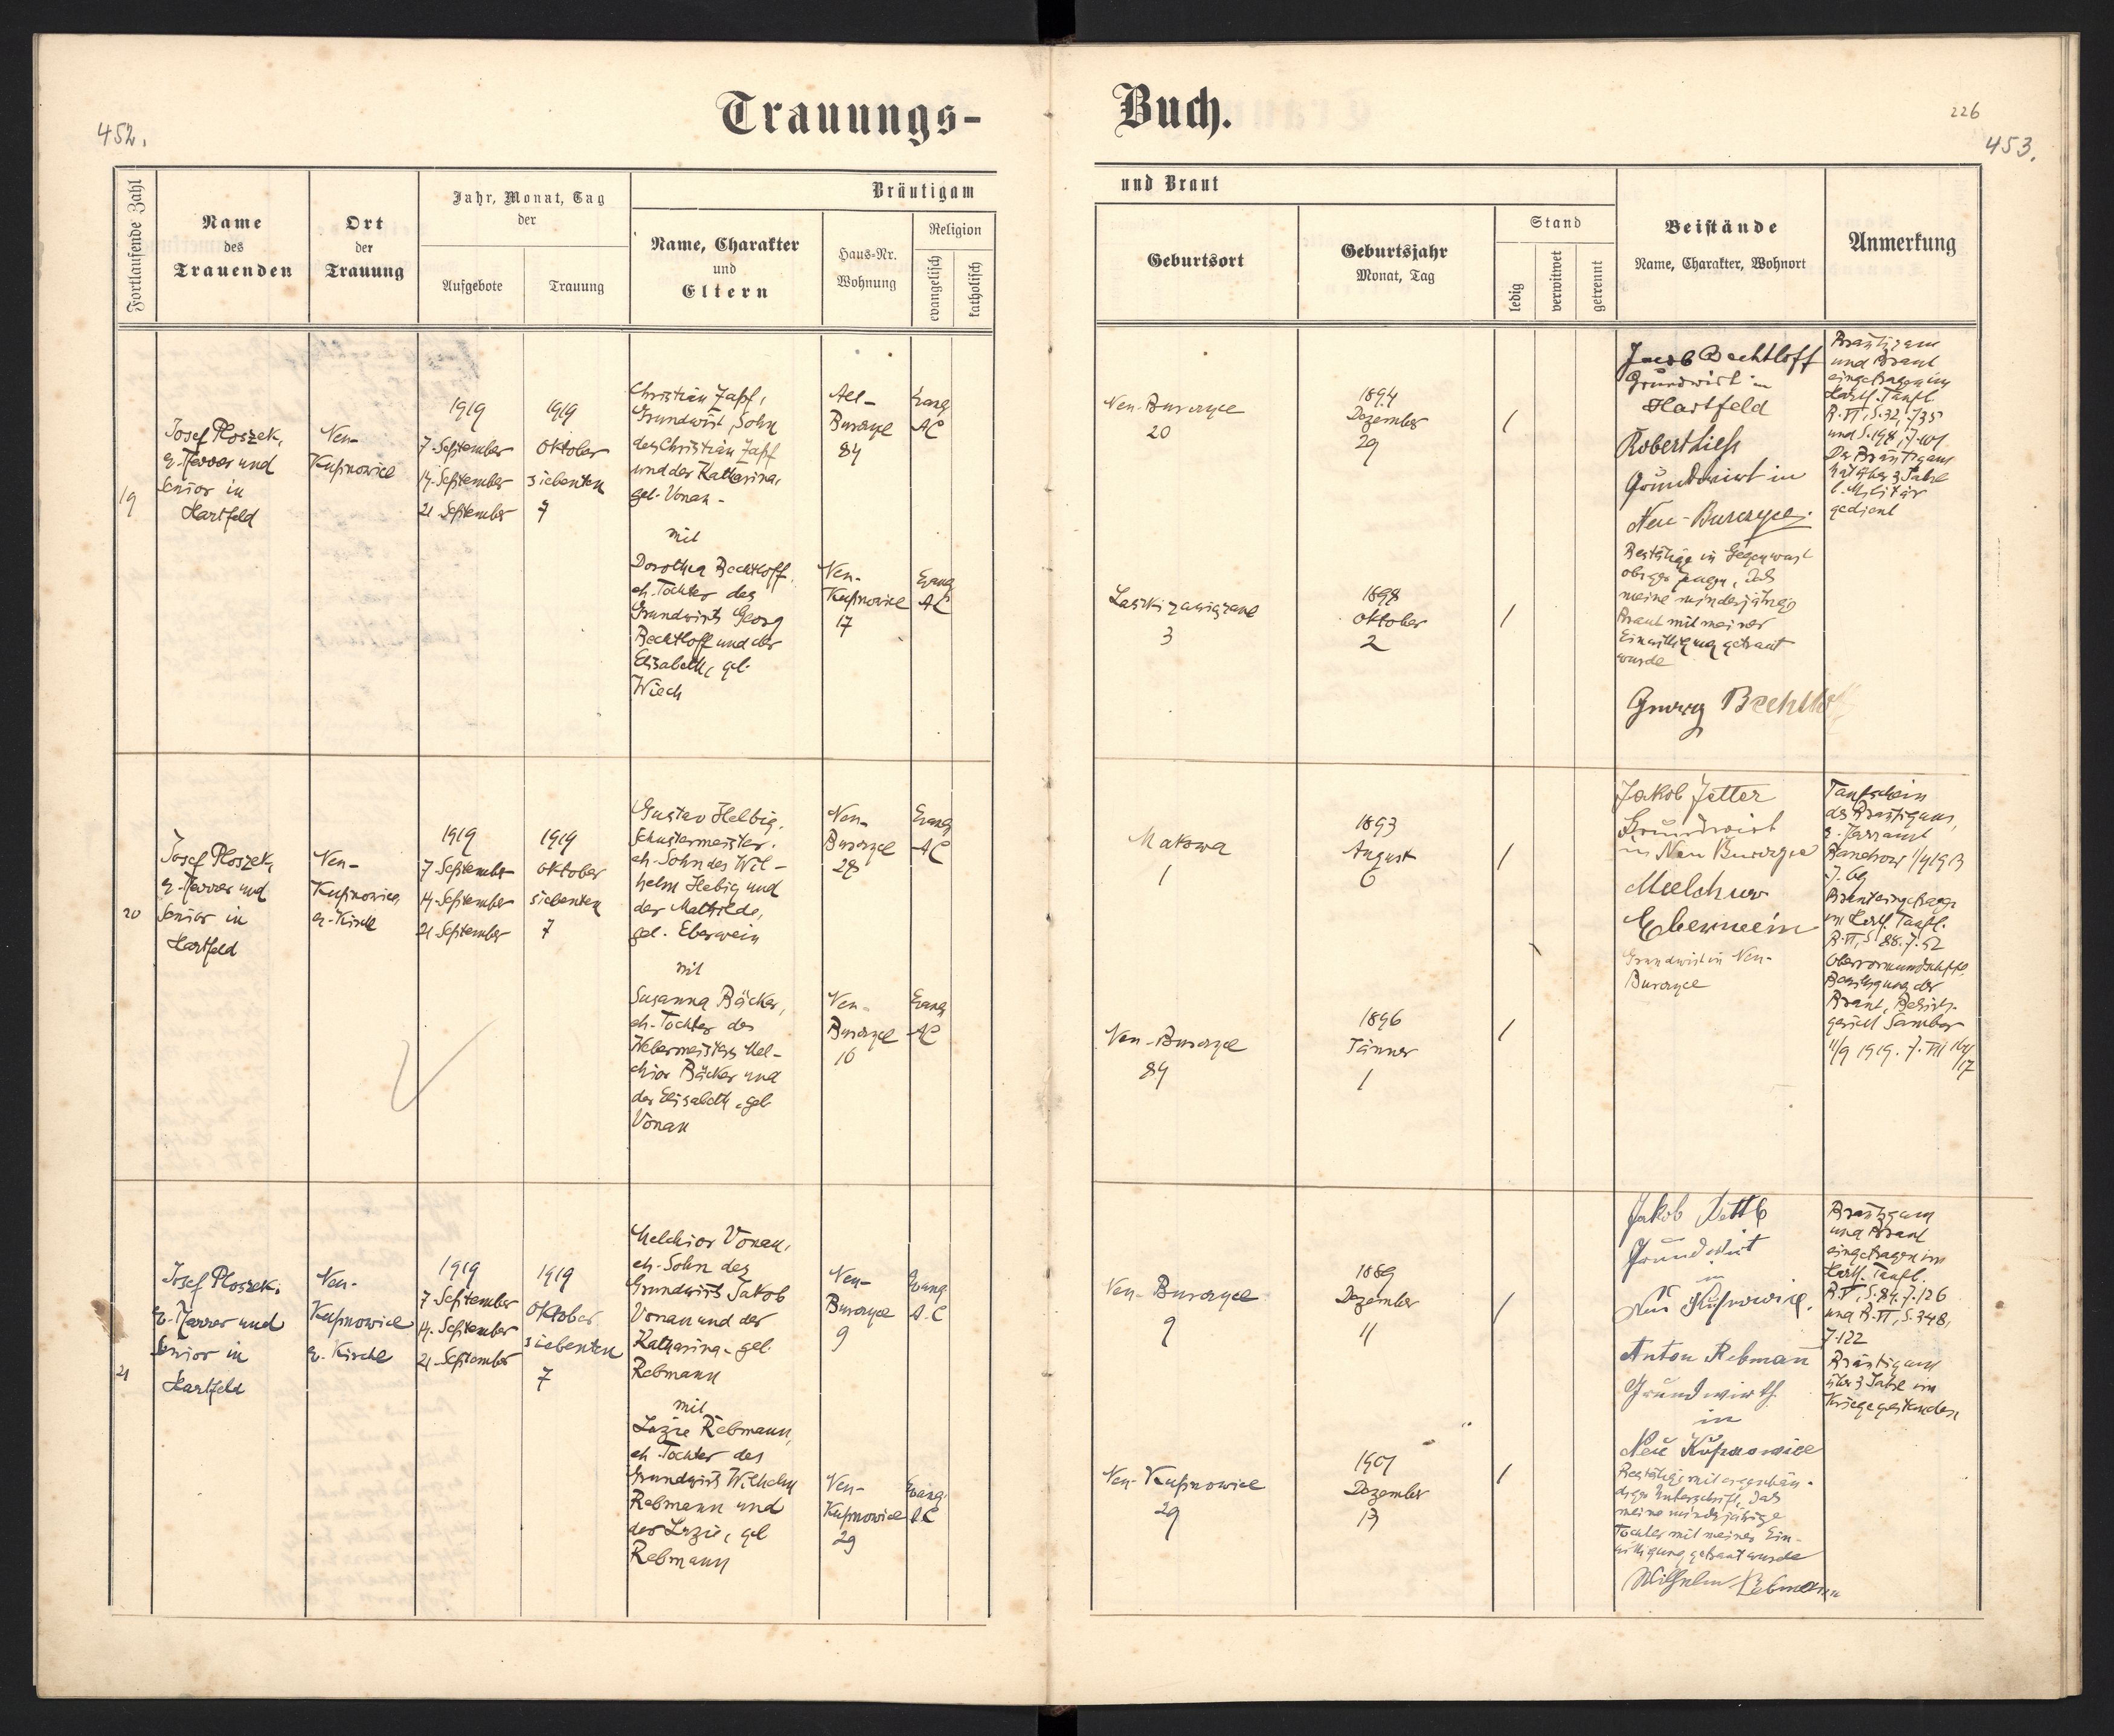 452.
Trauungs-
Fortlaufende Zahl
Name
des
Trauenden
Ort
der
Trauung
Jahr, Monat, Tag
der
Aufgebote
Trauung
Bräutigam
Name, Charakter
und
Eltern
Haus-Nr.
Wohnung
Religion
evangelisch
katholisch
19
Josef Ploszek,
e. Pfarrer und
Senior in
Hartfeld
Neu-
Kupnowice
1919
7. September
14. September
21. September
1919
Oktober
siebenten
7
Christian Zapf,
Grundwirt, Sohn
des Christian Zapf
und der Katharina,
geb. Vonau-
mit
Dorothea Bechtloff,
eh. Tochter des
Grundwirts Georg
Bechtloff und der
Elisabeth, geb.
Wiech
Alt-
Burczyce
84
Evang
AC
Neu-
Kupnowice
17
Evang
AC
20
Josef Ploszek,
e. Pfarrer und
Senior in
Hartfeld
Neu-
Kupnowice,
e. Kirche
1919
7. September
14. September
21. September
1919
Oktober
siebenten
7
Gustav Helbig,
Schustermeister,
eh. Sohn des Wil-
helm Helbig und
der Mathilde,
geb. Eberwein
mit
Susanna Bäcker,
eh. Tochter des
Webermeisters Mel-
chior Bäcker und
der Elisabeth, geb.
Vonau
Neu-
Burczyce
28
Evang
AC
Neu-
Burczyce
16
Evang
AC
21
Josef Ploszek,
e. Pfarrer und
Senior in
Hartfeld
Neu-
Kupnowice
e. Kirche
1919
7. September
14. September
21. September
1919
Oktober
siebenten
7
Melchior Vonau,
eh. Sohn des
Grundwirts Jakob
Vonau und der
Katharina, geb.
Rebmann
mit
Luzie Rebmann,
eh. Tochter des
Grundwirts Wilhelm
Rebmann und
der Luzie, geb
Rebmann
Neu-
Burczyce
9
Evang
A.C
Neu-
Kupnowice
29
Evang.
AC
Buch.
226
453.
und Braut
Geburtsort
Geburtsjahr
Monat, Tag
Stand
ledig
verwitwet
getrennt
Beistände
Name, Charakter, Wohnort
Anmerkung
Neu-Burczyce
20
1894
Dezember
29
/
Laszki zawiązane
3
1898
Oktober
2
/
Jacob Bechtloff
Grundwirt in
Hartfeld
Robert Liess
Grundwirt in
Neu-Burczyce.
Bestätige in Gegenwart
obiger Zeugen, daß
meine minderjährige
Braut mit meiner
Einwilligung getraut
wurde
Georg Bechtloff
Bräutigam
und Braut
eingetragen im
Hartf. Taufb.
B. VI, S. 32, Z 35
und S. 198, Z. 101
Der Bräutigam
hat über 3 Jahre
b. Militär
gedient
Makowa
1
1893
August
6
/
Neu-Burczyce
84
1896
Jänner
1
/
Jakob Jetter
Grundwirt
in Neu Burczyce
Melchior
Eberwein
Grundwirt in Neu-
Burczyce
Taufschein
des Bräutigams,
e. Pfarramt
Bandrow 1/4 1913
Z. 69
Braut eingetragen
im Hartf. Taufb.
B. VI, S. 88. Z. 52
Obervormundschaftl.
Bewilligung der
Braut, Bezirks-
gericht Sambor
11/9 1919. Z.
Neu-Burczyce
9
1889
Dezember
11
/
Neu-Kupnowice
29
1901
Dezember
13
/
Grundwirt
in
Neu Kupnowice.
Anton Rebmann
Grundwirth
in
Neu Kupnowice
Bestätige mit eigenhän-
diger Unterschrift, daß
meine minderjährige
Tochter mit meiner Ein-
willigung getraut wurde
Wilhelm Rebmann
Bräutigam
und Braut
eingetragen im
Hartf. Taufb.
B. V, S. 84. Z. 126
und B. VI, S. 348,
Z. 122
Bräutigam
über 3 Jahre im
Kriege gestanden